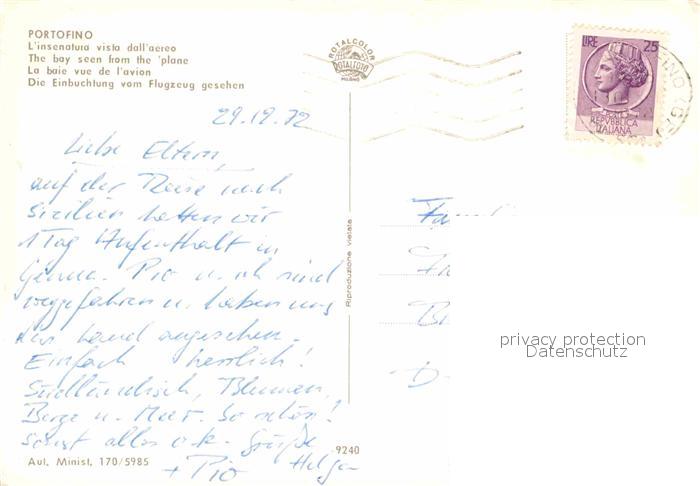 PORTOFINO
L'insenatura vista dall'aereo
The bay seen from the 'plane
La baie vue de l'avion
Die Einbuchtung vom Flugzeug gesehen
ROTALCOLOR
ROTALFOTO
MILANO
LIRE 25
POSTE
REPVBBLICA
ITALIANA
29.12.72
Liebe Eltern,
auf der Reise nach
Sizilien hatten wir
1 Tag Aufenthalt in
Genua. Pio u. ich sind
weggefahren u. haben uns
das Land angesehen.
Einfach herrlich!
Südländisch, Blumen,
Berge u. Meer. So schön!
Sonst alles o.k. Grüße
Helga
+ Pio
Riproduzione vietata
9240
Aut. Minist. 170/5985
Fam
Fr
B
D
privacy protection
Datenschutz